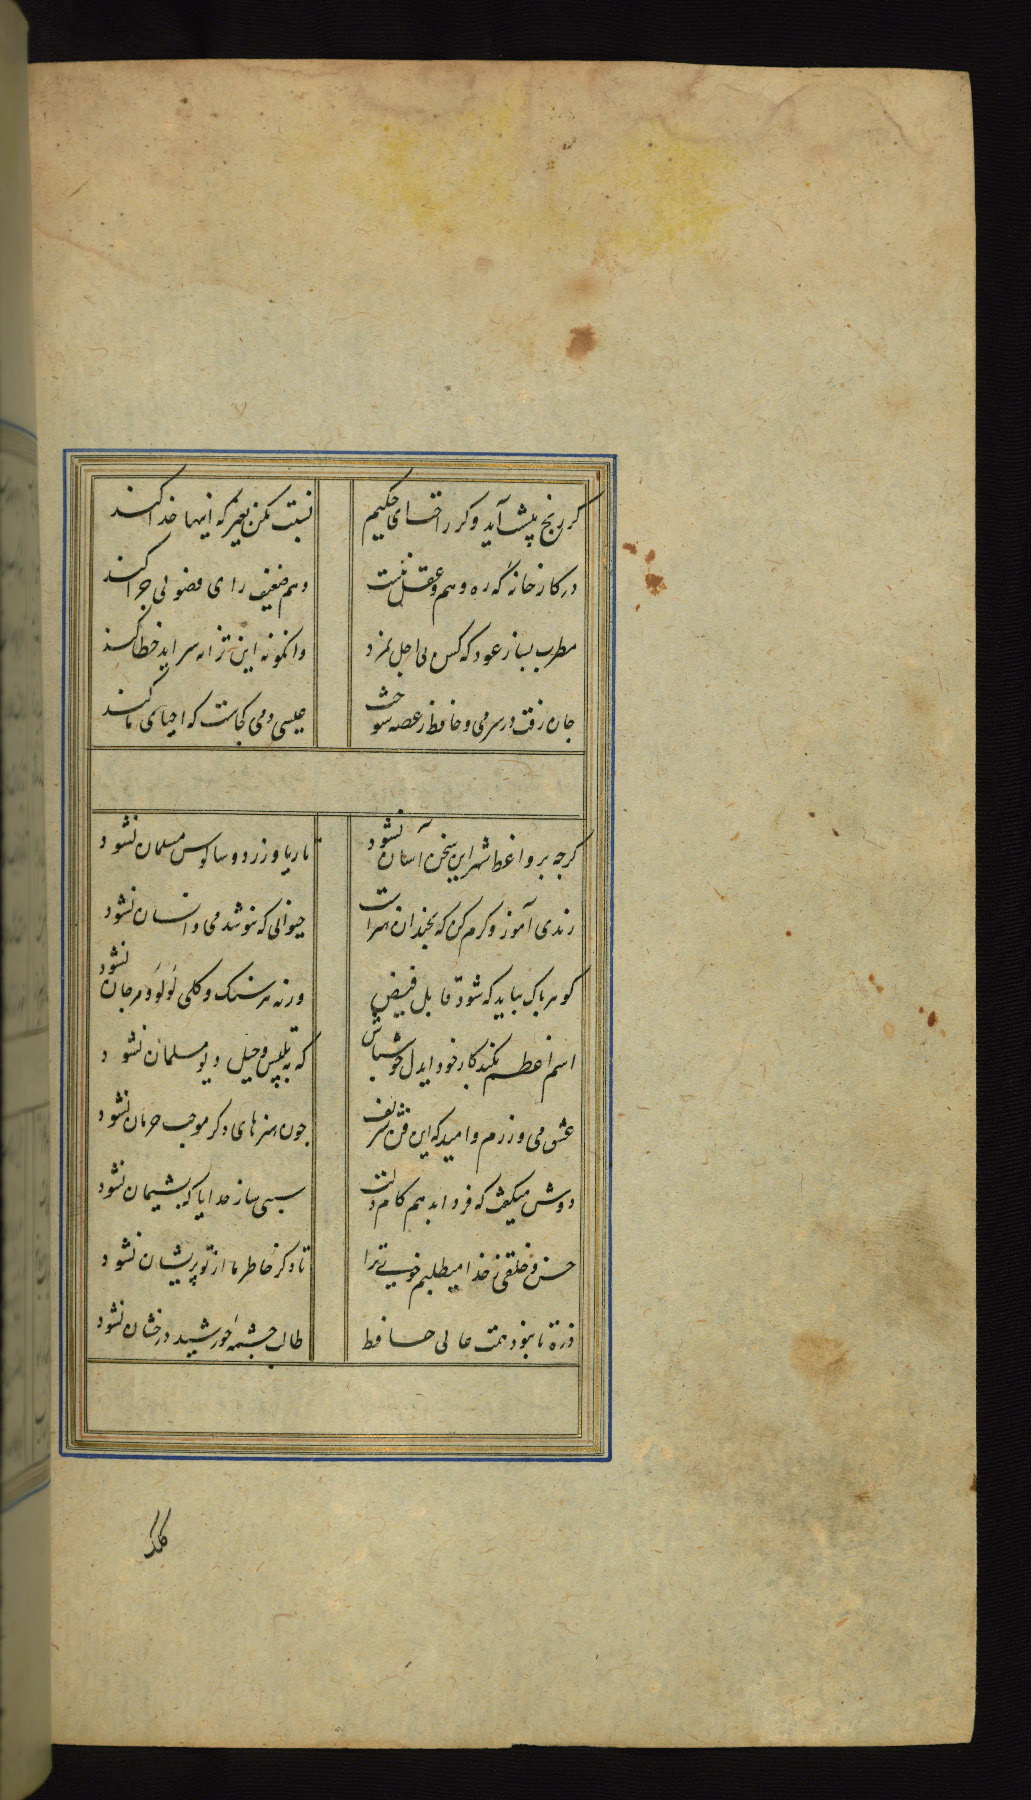 کر رنج پیش آید و کر راحت ای حکیم
نسبت مکن بغیر که اینها خدا کند
در کارخانه که ره وهم و عقل نیست
وهم ضعیف رای فضولی چرا کند
مطرب بساز عود که کس بی اجل نمرد
وانکو نه این ترانه سراید خطا کند
جان رفت در سر می و حافظ ز غصه سوخت
عیسی دمی کجاست که احیای ما کند
کرچه بر واعظ شهر این سخن آسان نشود
تا ریا ورزد و سالوس مسلمان نشود
رندی آموز و کرم کن که نچندان هنر است
حیوانی که ننوشد می و انسان نشود
کوهر پاک بباید که شود قابل فیض
ورنه هر سنک و کلی لؤلؤ و مرجان نشود
اسم اعظم بکند کار خود ای دل خوش باش
که به تلبیس و حیل دیو مسلمان نشود
عشق می ورزم و امید که این فن شریف
چون هنرهای دکر موجب حرمان نشود
دوش میکفت که فردا بدهم کام دلت
سببی ساز خدایا که پشیمان نشود
حسن خلقی ز خدا میطلبم خوی ترا
تا دکر خاطر ما از تو پریشان نشود
ذره تا نبود همت عالی حافظ
طالب چشمه خورشید درخشان نشود